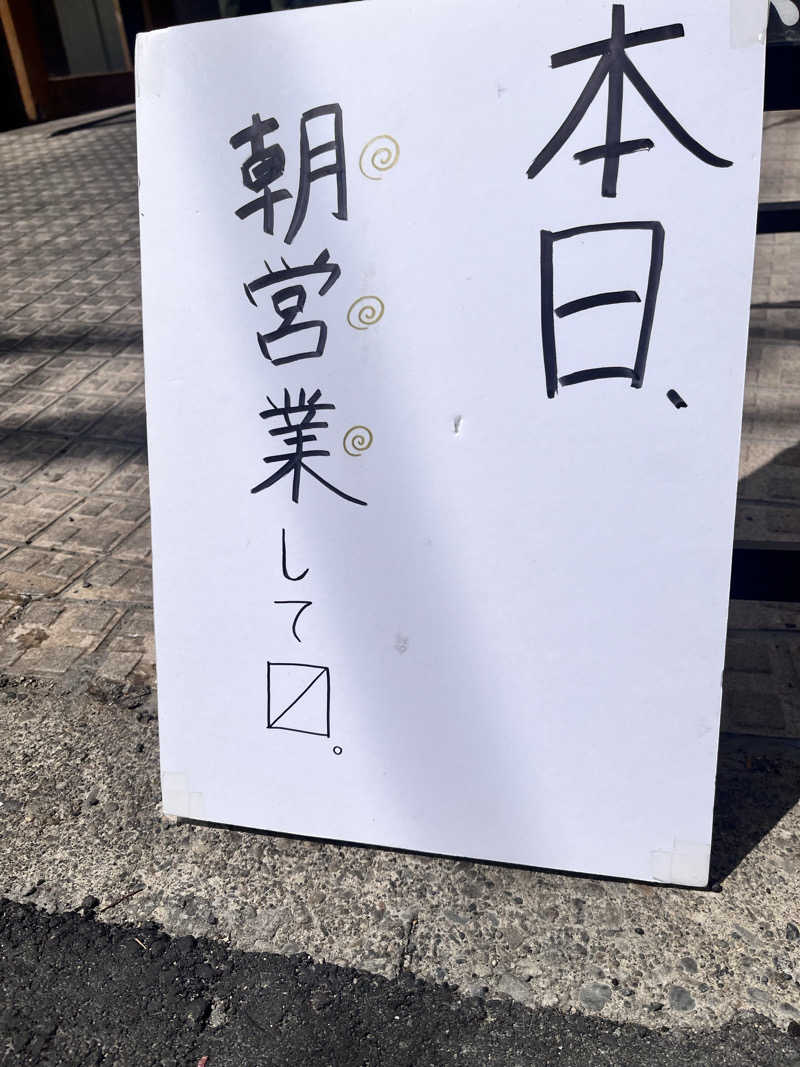 本日、
朝営業して〼。